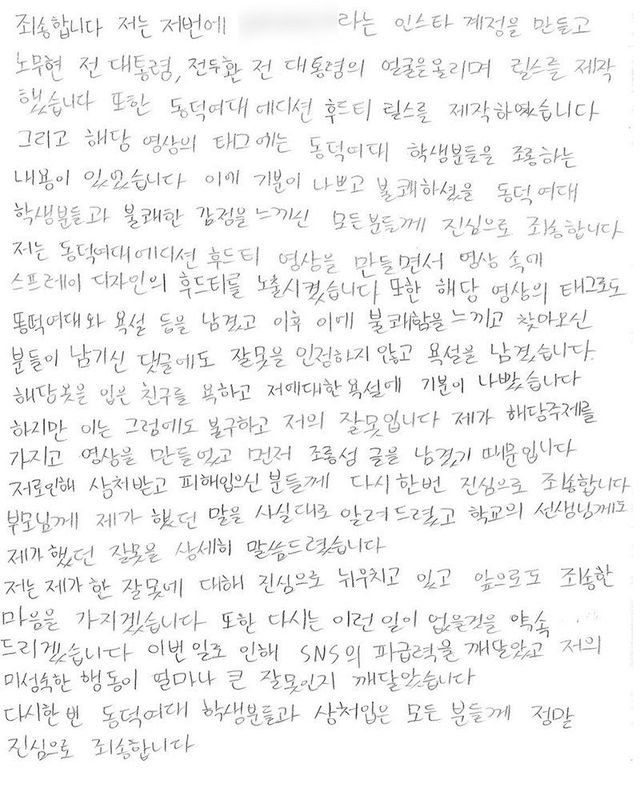 죄송합니다 저는 저번에 라는 인스타 계정을 만들고
노무현 전 대통령, 전두환 전 대통령의 얼굴을올리며 릴스를 제작
했습니다 또한 동덕여대 에디션 후드티 릴스를 제작하였습니다
그리고 해당 영상의 태그에는 동덕여대 학생분들을 조롱하는
내용이 있었습니다 이에 기분이 나쁘고 불쾌하셨을 동덕여대
학생분들과 불쾌한 감정을느끼신 모든분들께 진심으로 죄송합니다
저는 동덕여대에디션 후드티 영상을 만들면서 영상 속에
스프레이 디자인의 후드티를 노출시켰습니다 또한 해당 영상의 태그로도
똥떡여대와 욕설 등을 남겼고 이후 이에 불쾌함을느끼고 찾아오신
분들이 남기신 댓글에도 잘못을 인정하지 않고 욕설을 남겼습니다.
해당옷을 입은 친구를 욕하고 저에대한 욕설에 기분이 나빴습니다
하지만 이는 그럼에도 불구하고 저의 잘못입니다 제가 해당주제를
가지고 영상을 만들었고 먼저 조롱성 글을 남겼기 때문입니다
저로인해 상처받고 피해입으신 분들께 다시한번 진심으로 죄송합니다
부모님께 제가 했던 말을 사실대로 알려드렸고 학교의 선생님께도
제가했던 잘못을 상세히 말씀드렸습니다
저는 제가 한 잘못에 대해 진심으로 뉘우치고 있고 앞으로도 죄송한
마음을 가지겠습니다 또한 다시는 이런 일이 없을것을 약속
드리겠습니다 이번 일로 인해 SNS의 파급력을 깨달았고 저의
미성숙한 행동이 얼마나 큰 잘못인지 깨달았습니다
다시한번 동덕여대 학생분들과 상처입은 모든 분들께 정말
진심으로 죄송합니다